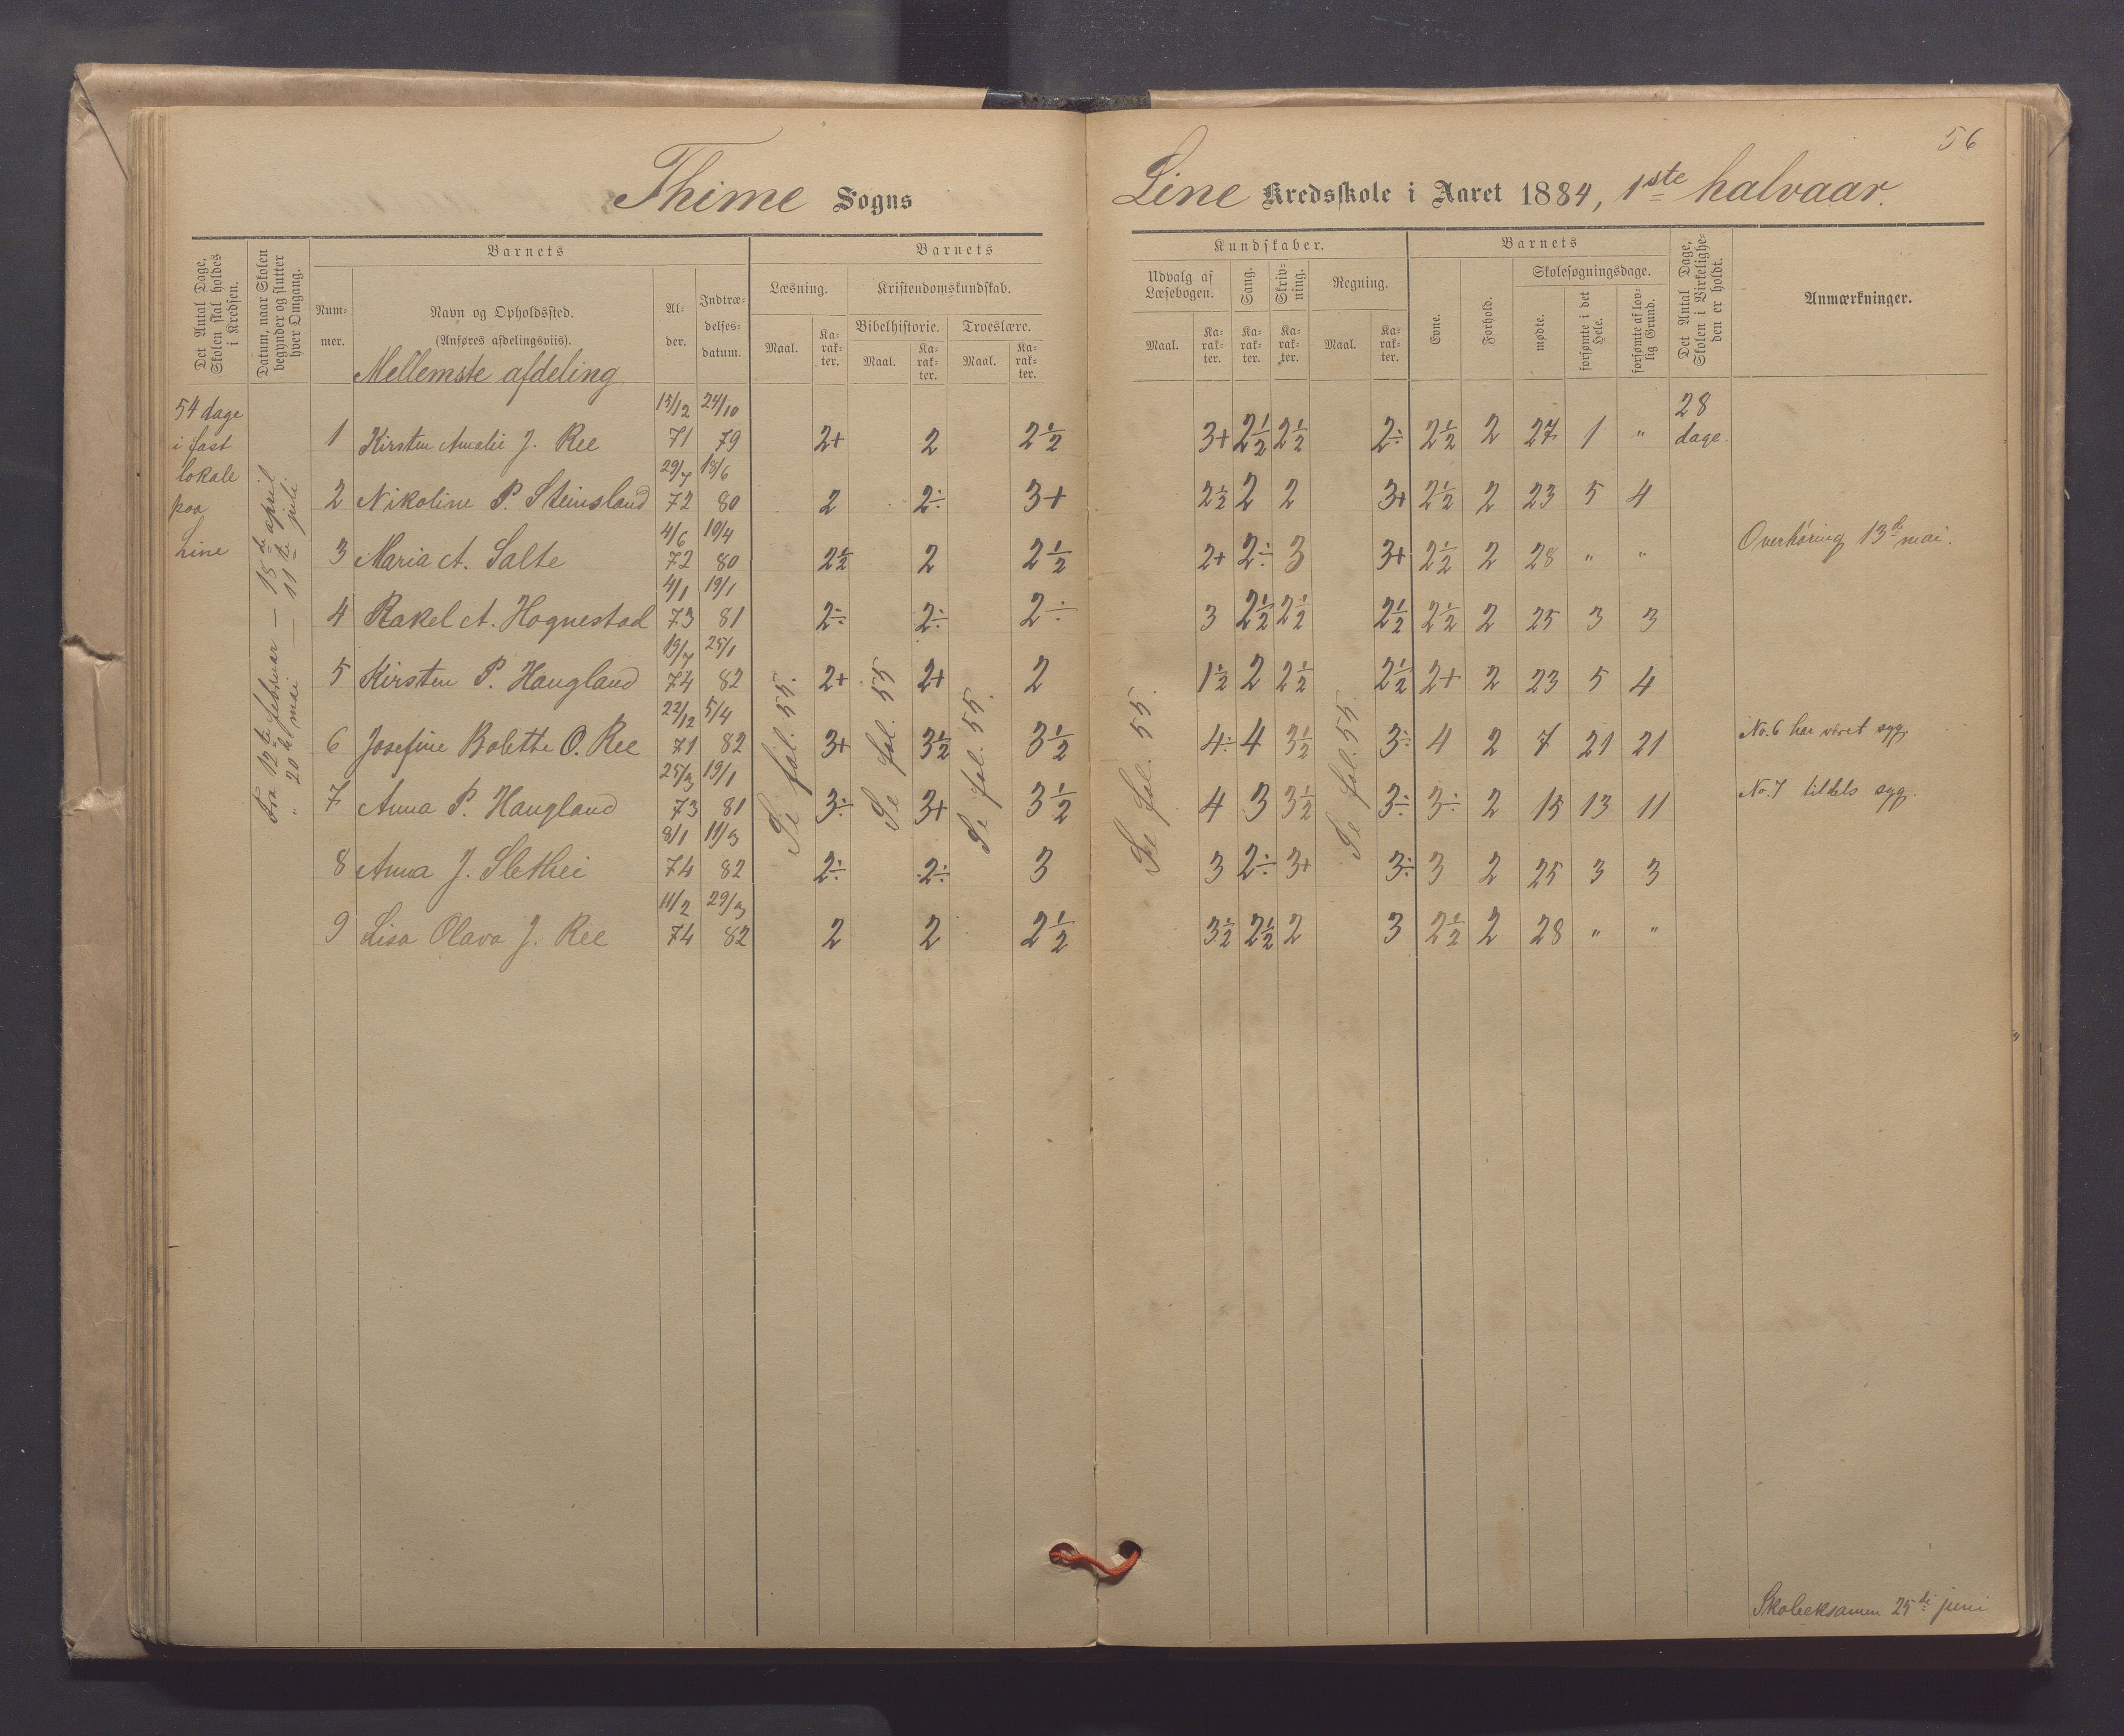 56
Thime Sogns Line Kredsskole i Aaret 1884, 1ste halvaar.
Det Antal Dage, Skolen skal holdes i Kredsen.
Datum, naar Skolen begynder og slutter hver Omgang.
Barnets
Nummer.
Navn og Opholdssted.
(Anføres afdelingsviis).
Alder.
Indtrædelsesdatum.
Barnets Kundskaber.
Læsning.
Maal. Karakter.
Kristendomskundskab.
Bibelhistorie. Troeslære.
Maal. Karakter. Maal. Karakter.
Udvalg af Læsebogen.
Maal. Karakter.
Sang.
Karakter.
Skrivning.
Karakter.
Regning.
Maal. Karakter.
Barnets
Evne.
Forhold.
Skolesøgningsdage.
mødte.
forsømte i det Hele.
forsømte af lovlig Grund.
Det Antal Dage, Skolen i Virkeligheden er holdt.
Anmærkninger.
Mellemste afdeling
54 dage
i fast
lokale
paa
Line
Fra 12te februar — 18de april
" 20de mai — 11te juli
1 Kirsten Amalie J. Ree 15/12 71 24/10 79 2+ 2 2½ 3+ 2½ 2½ 2÷ 2½ 2 27 1 " 28 dage.
2 Nikoline P. Steinsland 29/7 72 18/6 80 2 2÷ 3+ 2½ 2 2 3+ 2½ 2 23 5 4
3 Maria A. Salte 4/6 72 19/4 80 2½ 2 2½ 2+ 2÷ 3 3+ 2½ 2 28 " " Overhøring 13de mai.
4 Rakel A. Hognestad 4/1 73 19/1 81 2÷ 2÷ 2÷ 3 2½ 2½ 2½ 2½ 2 25 3 3
5 Kirsten P. Haugland 19/7 74 25/1 82 2+ 2+ 2 1½ 2 2½ 2½ 2+ 2 23 5 4
6 Josefine Bolette O. Ree 22/12 71 5/4 82 3+ 3½ 3½ 4÷ 4 3½ 3÷ 4 2 7 21 21 No. 6 har været syg.
7 Anna P. Haugland 25/3 73 19/1 81 3÷ 3+ 3½ 4 3 3½ 3÷ 3÷ 2 15 13 11 No. 7 tildels syg.
8 Anna J. Slethei 8/1 74 11/3 82 2÷ 2÷ 3 3 2÷ 3+ 3÷ 3 2 25 3 3
9 Lisa Olava J. Ree 11/2 74 29/3 82 2 2 2½ 3½ 2½ 2 3 2½ 2 28 " "
Se fol. 55.
Se fol. 55
Se fol. 55.
Se fol. 55.
Se fol. 55.
Skoleeksamen 25de juni